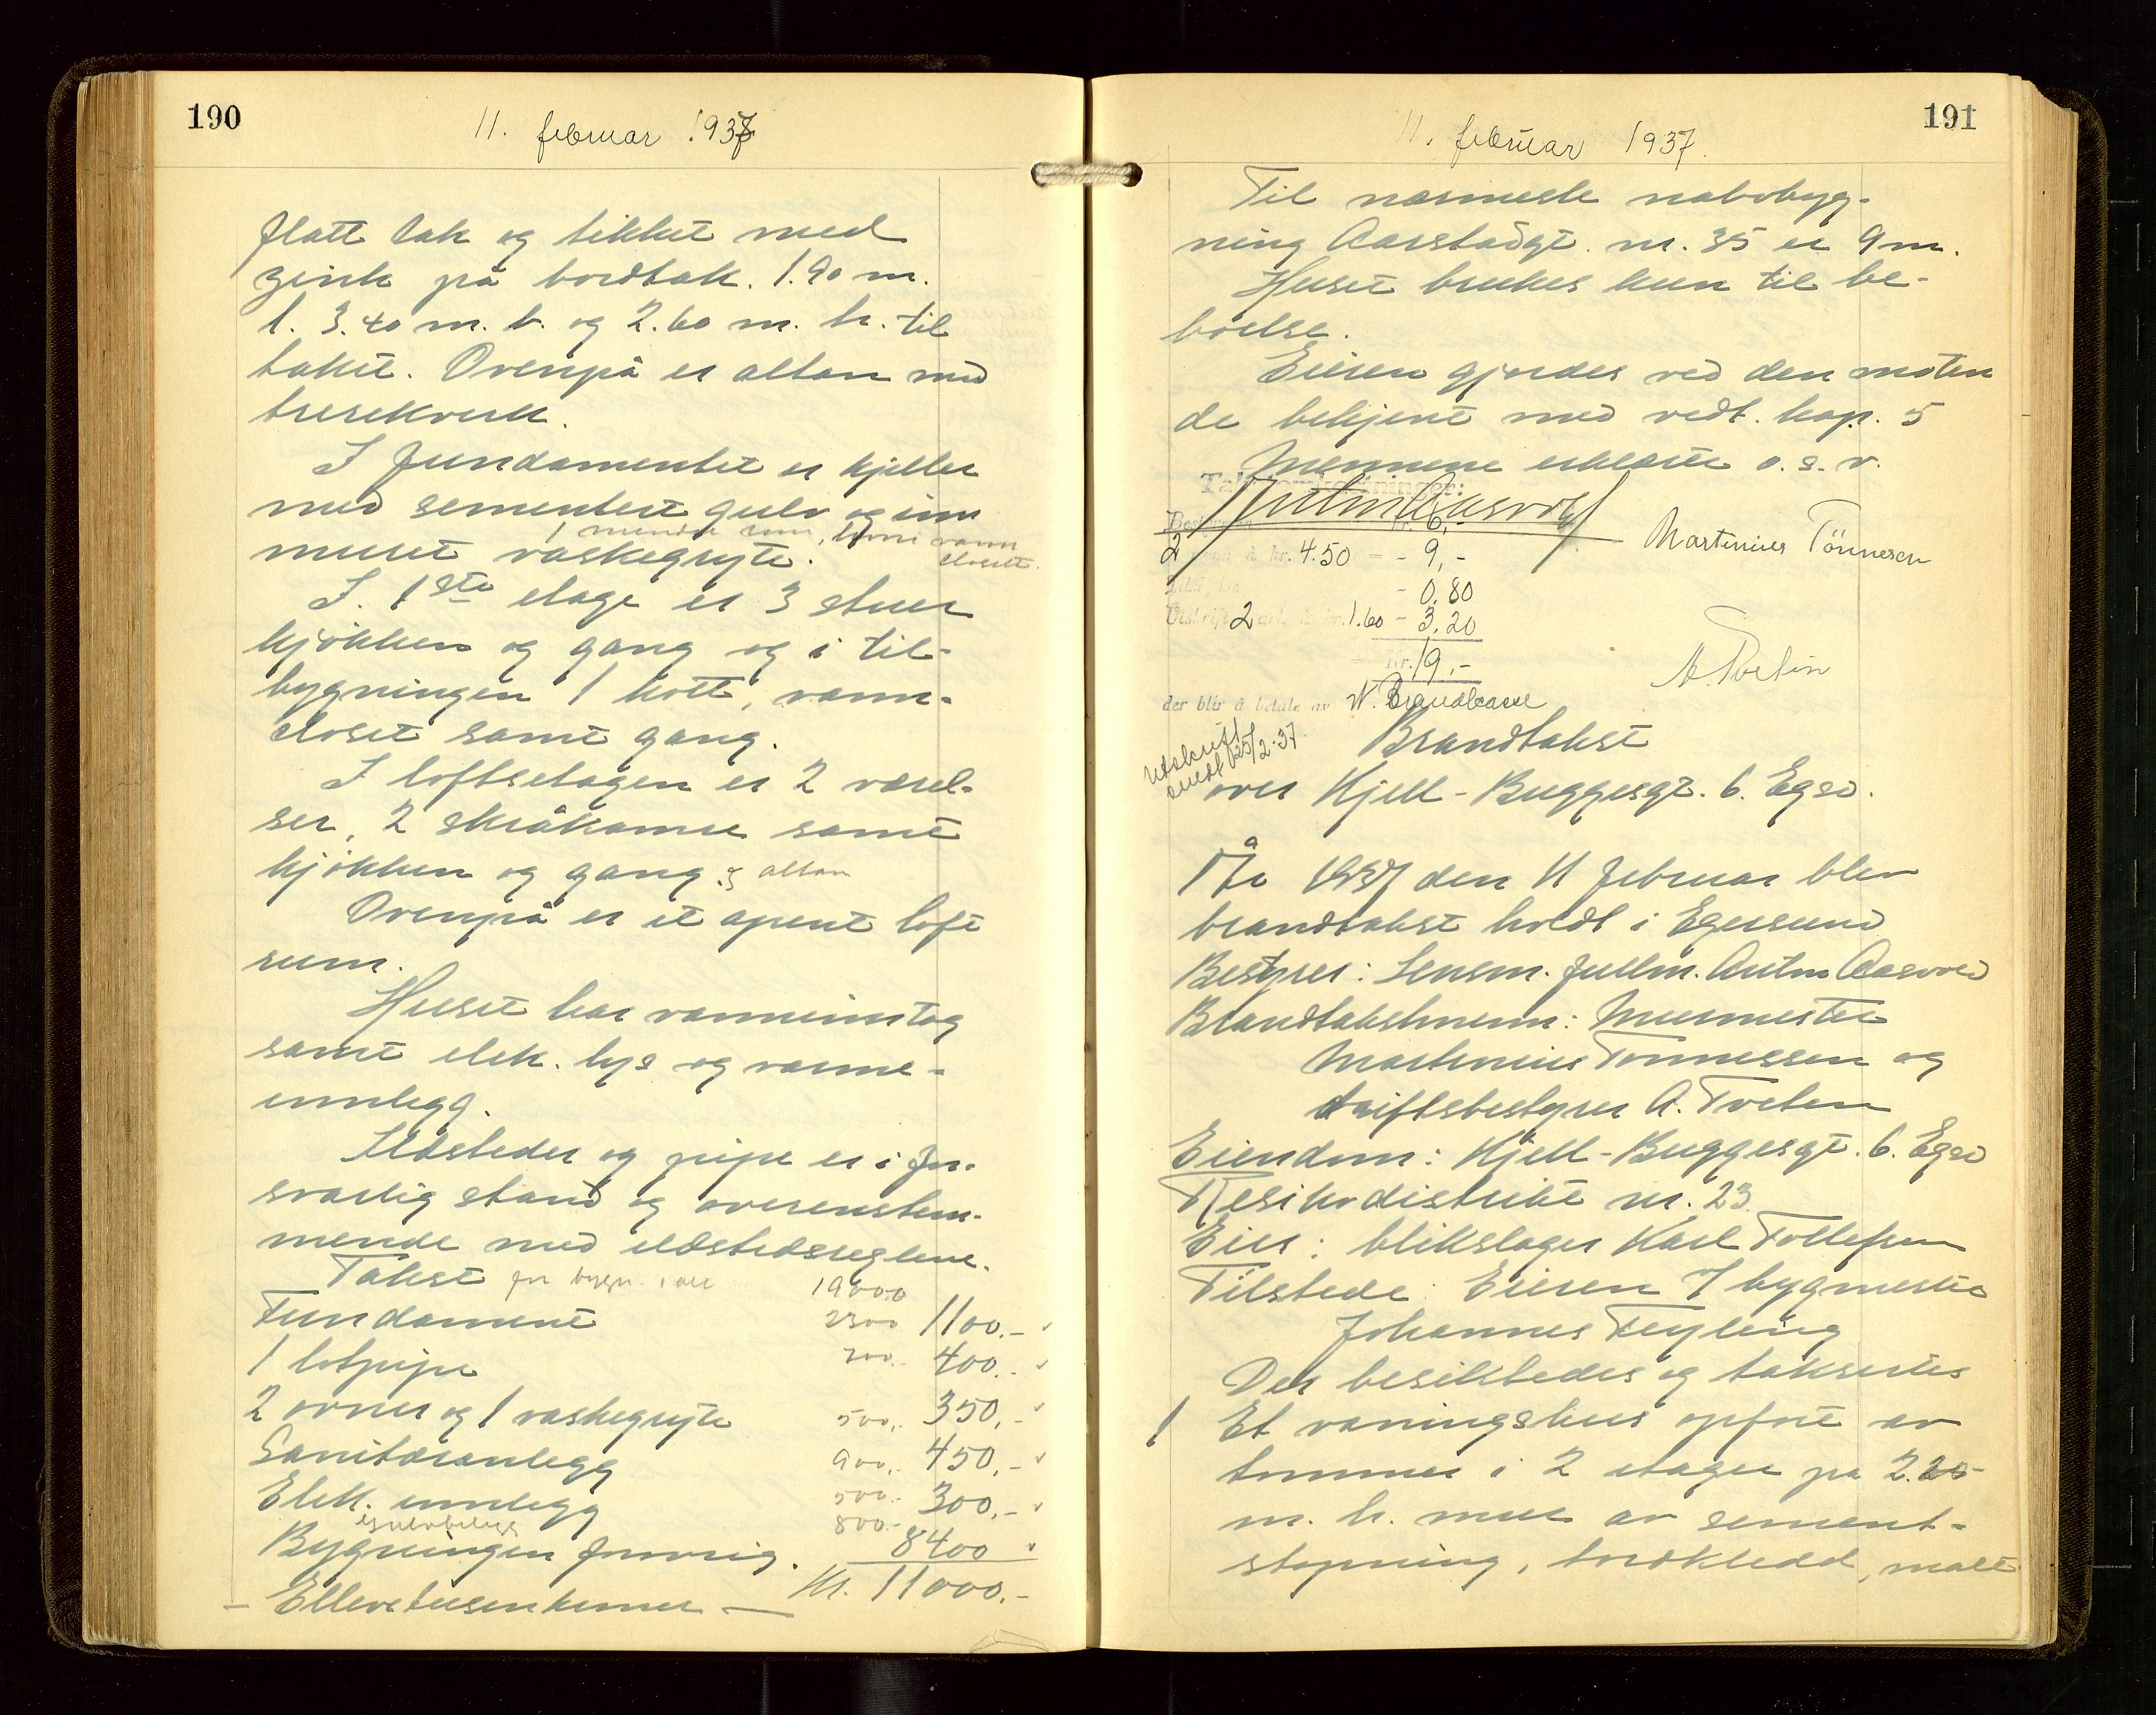 190
11. februar 1937
flatt tak og tekket med
zink på bordtak. 1.90 m.
l. 3.40 m. b. og 2.60 m. h. til
taket. Ovenpå er altan med
trerekverk.
I fundamentet er kjeller
med sementert gulv og inn
muret vaskegryte.
closett.
I. 1ste etage er 3 stuer
kjøkken og gang og i til-
bygningen 1 kott, vann-
closet samt gang.
I loftsetagen er 2 værel-
ser, 2 skråkamre samt
kjøkken og gang og altan
Ovenpå er et åpent loft
rum.
Huset har vanninntag
samt elek. lys og varme-
innlegg.
Ildsteder og pipe er i for-
svarlig stand og overenstem-
mende med ildstedsreglene.
Takst for bygn. i alt 19000
Fundament 2300 1100.-
1 løtpipe 700.- 400.-
2 ovner og 1 vaskegryte 500.- 350,-
Sanitæranlegg 900.- 450,-
Elek. innlegg 500.- 300,-
Gulvbelegg 800.-
Bygningen forøvrig. 8400
- Ellevetusenkroner - Kr. 11000.-
191
11. februar 1937.
Til nærmeste nabobyg-
ning Aarstadgt. nr. 35 er 9 m.
Huset brukes kun til be-
boelse.
Eieren gjordes ved den møten
de bekjent med vedt. kap. 5
Mennene erklærte o.s.v.
Takstomkostninger:
Anton Aasvold
6,-
Martinius Tönnesen
2 à kr. 4.50 - 9,-
- 0.80
Utskrift 2 ark à kr. 1.60 - 3.20
Kr. 19,-
A. Tveten
der blir å betale av N. Brandkasse
Utskrift
sendt 25/2-37
Brandtakst
over Kjell-Buggesgt. 6. Egsd.
År 1937 den 11 februar blev
brandtakst holdt i Egersund
Bestyrer: Lensm. fullm. Anton Aasvold
Brandtakstmenn: Murmester
Martinius Tønnessen og
driftsbestyrer A. Tveten
Eiendom: Kjell-Buggesgt. 6. Egsd
Risikodistrikt nr. 23.
Eier: blikslager Karl Tollefsen
Tilstede: Eieren v/ bygmester
Johannes Feyling
Der besiktedes og taksertes
1 Et våningshus opført av
tømmer i 2 etager på 2.20
m. h. mur av sement-
støpning, bordkledd, malt